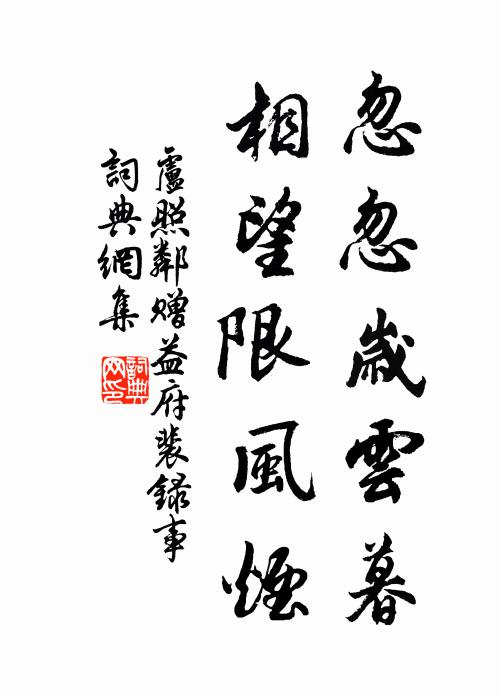 忽忽歲雲暮
相望限風煙
盧照鄰贈益府裴錄事
詞典網集
詞典網印